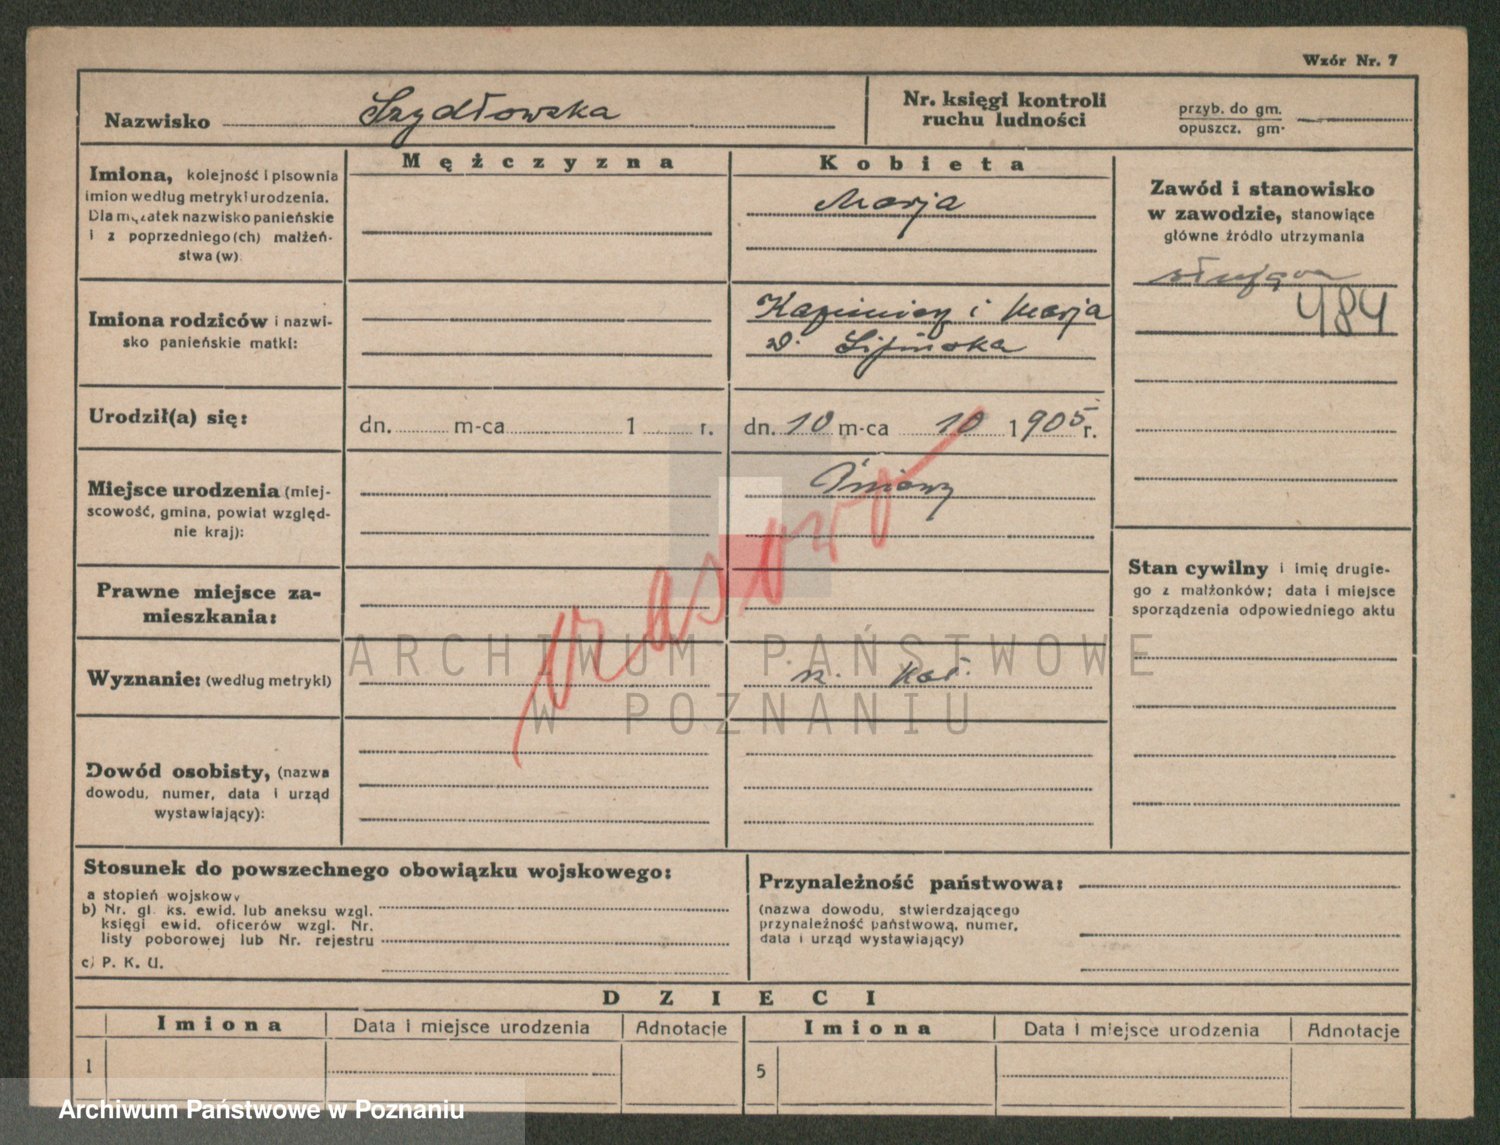 Wzór Nr. 7
Nazwisko Szydłowska
Nr. księgi kontroli
ruchu ludności
przyb. do gm.
opuszcz. gm.
Mężczyzna
Kobieta
Imiona, kolejność i pisownia
imion według metryki urodzenia.
Dla mężatek nazwisko panieńskie
i z poprzedniego(ch) małżeń-
stwa(w)
Marja
Zawód i stanowisko
w zawodzie, stanowiące
główne źródło utrzymania
służąca
484
Imiona rodziców i nazwi-
sko panieńskie matki:
Kazimierz i Marja
d. Lipińska
Urodził(a) się:
dn. m-ca 1 r.
dn. 10 m-ca 10 1905 r.
Miejsce urodzenia (miej-
scowość, gmina, powiat względ-
nie kraj):
Prawne miejsce za-
mieszkania:
Stan cywilny i imię drugie-
go z małżonków; data i miejsce
sporządzenia odpowiedniego aktu
Wyznanie: (według metryki)
r. kat.
ARCHIWUM PAŃSTWOWE
W POZNANIU
Dowód osobisty, (nazwa
dowodu, numer, data i urząd
wystawiający):
Stosunek do powszechnego obowiązku wojskowego:
a stopień wojskowy
b) Nr. gl. ks. ewid. lub aneksu wzgl.
księgi ewid. oficerów wzgl. Nr.
listy poborowej lub Nr. rejestru
c) P. K. U.
Przynależność państwowa:
(nazwa dowodu, stwierdzającego
przynależność państwową, numer,
data i urząd wystawiający)
DZIECI
Imiona Data i miejsce urodzenia Adnotacje Imiona Data i miejsce urodzenia Adnotacje
1 5
Archiwum Państwowe w Poznaniu